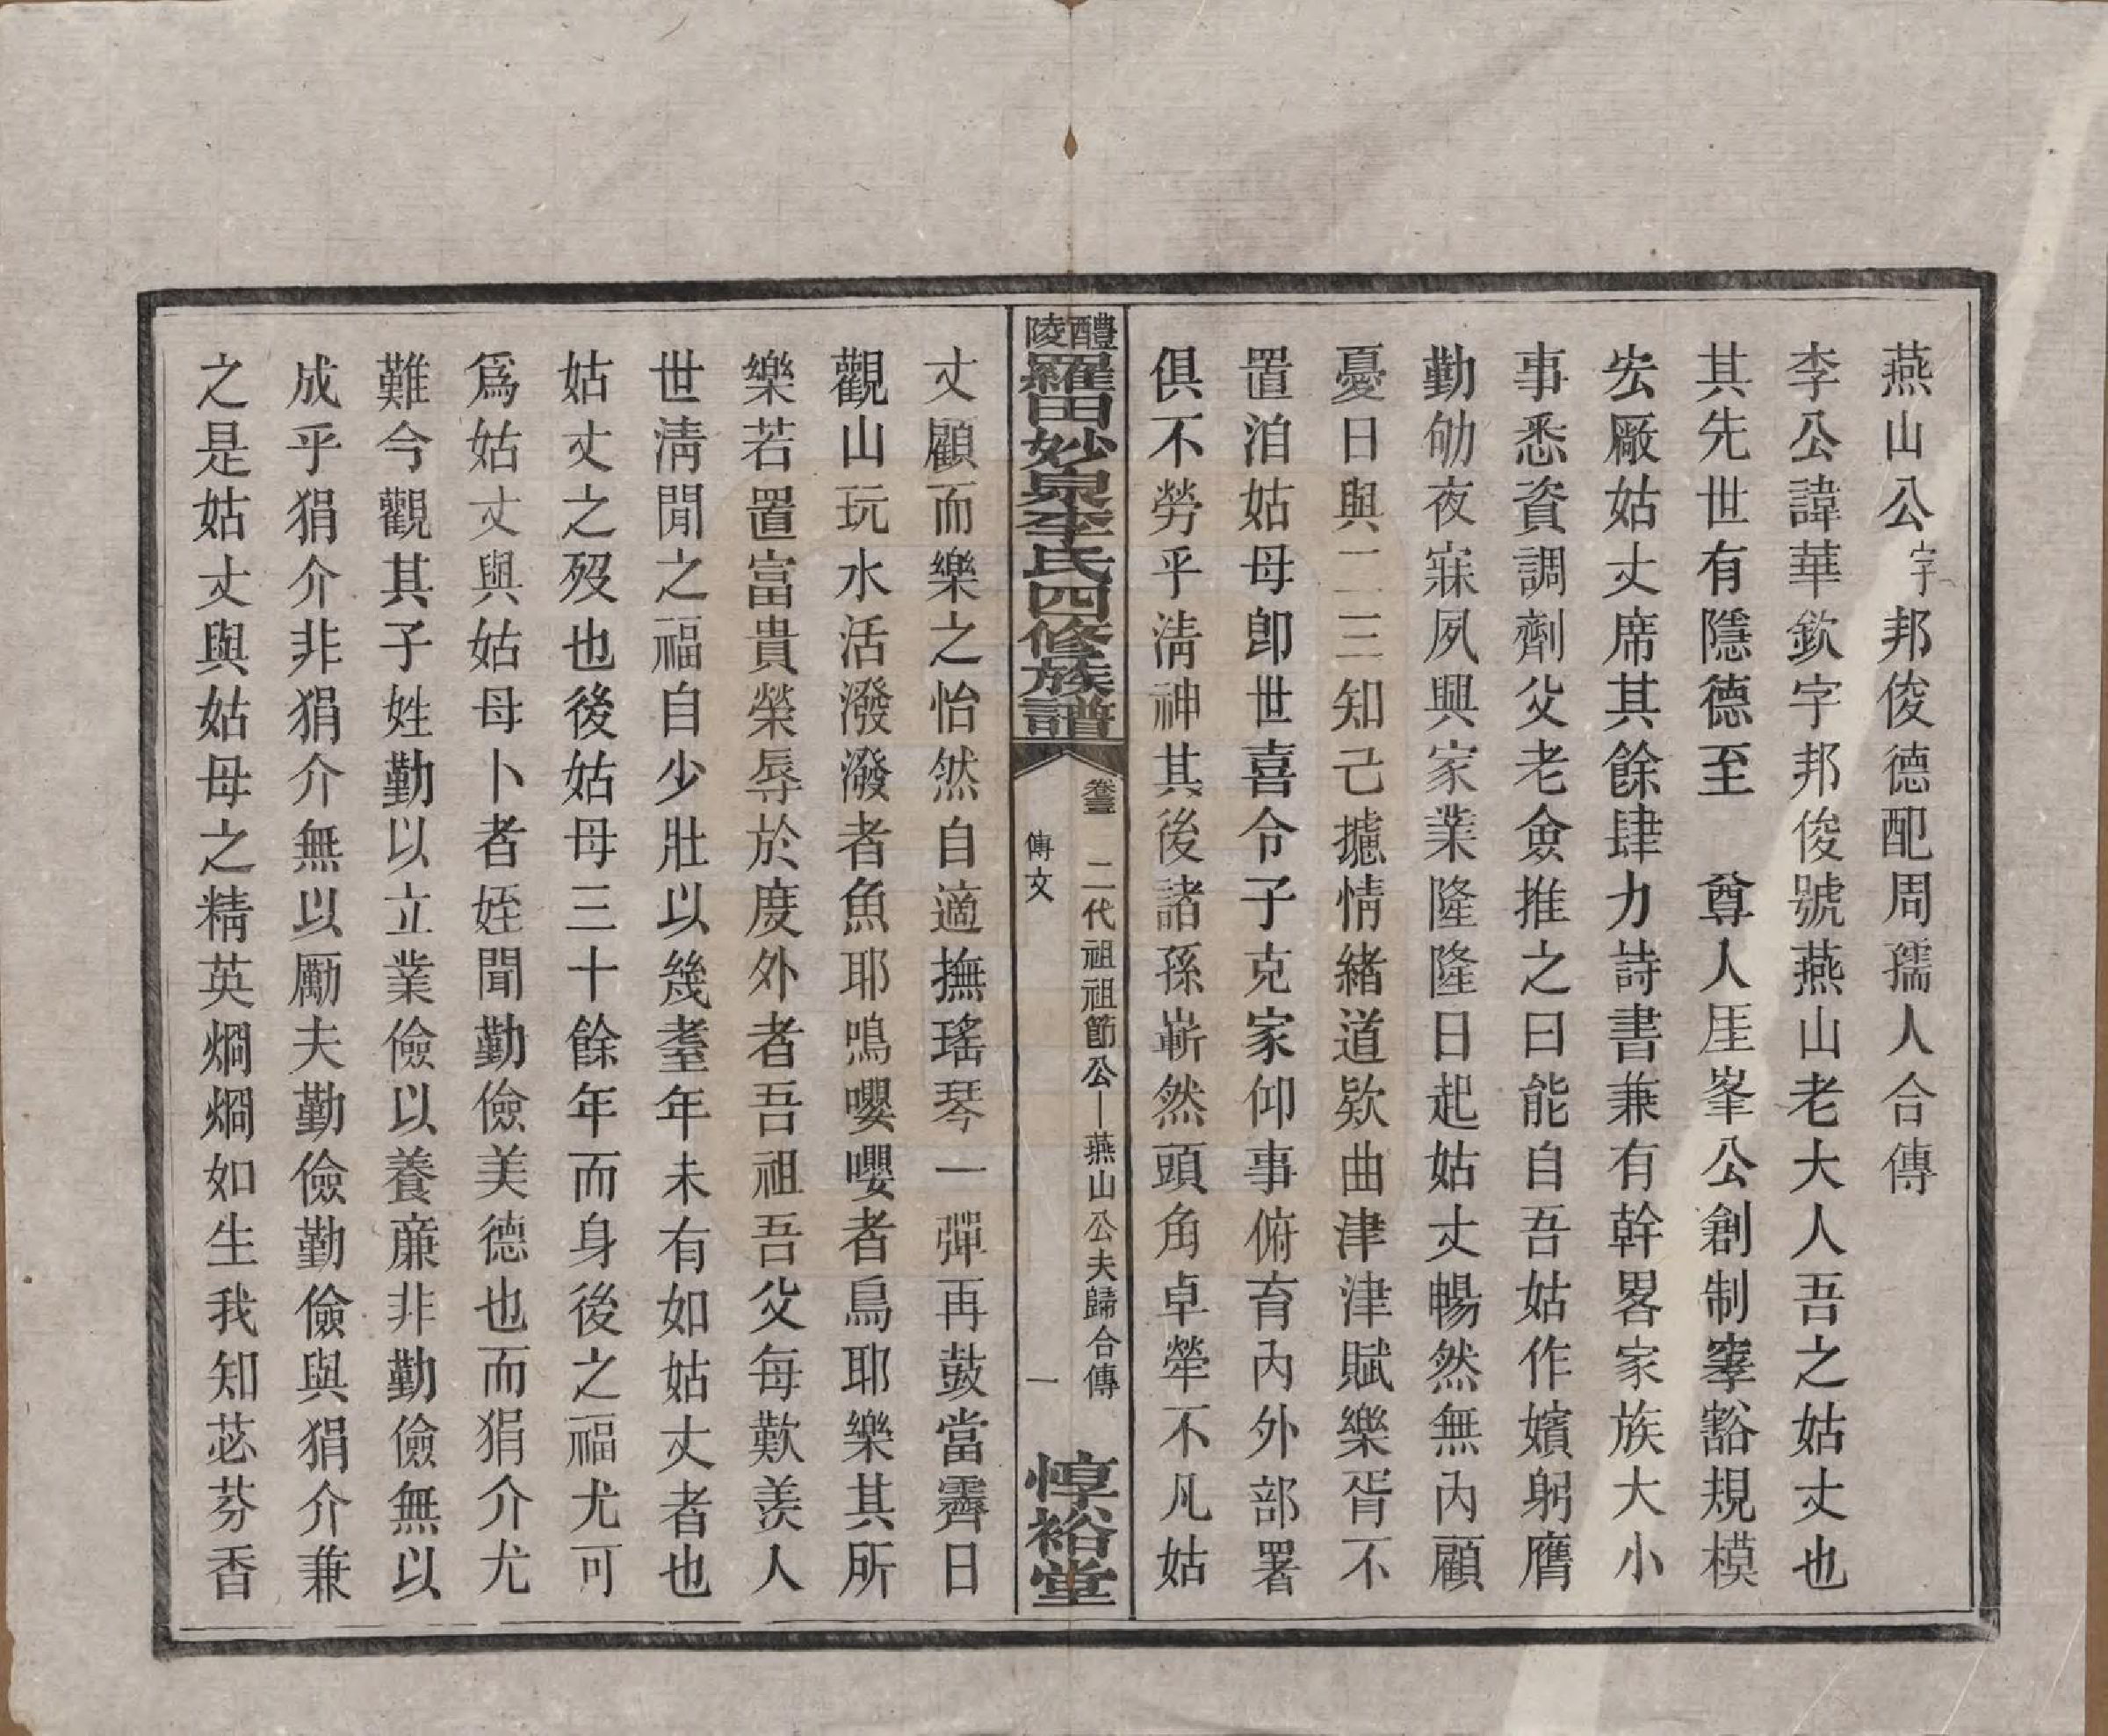 燕山公字邦俊德配周孺人合傳
李公諱華欽字邦俊號燕山老大人吾之姑丈也
其先世有隱德至　尊人厓峯公創制寥豁規模
宏厰姑丈席其餘肆力詩書兼有幹畧家族大小
事悉資調劑父老僉推之曰能自吾姑作嬪躬膺
勤劬夜寐夙興家業隆隆日起姑丈暢然無內顧
憂日與二三知己攄情緒道欵曲津津賦樂胥不
置洎姑母卽世喜令子克家仰事俯育內外部署
俱不勞乎淸神其後諸孫嶄然頭角卓犖不凡姑
醴陵羅田妙泉李氏四修族譜
卷三　二代祖祖節公—燕山公夫歸合傳
傳文　一
惇裕堂
丈顧而樂之怡然自適撫瑤琴一彈再鼓當霽日
觀山玩水活潑潑者魚耶鳴嚶嚶者鳥耶樂其所
樂若置富貴榮辱於度外者吾祖吾父每歎羨人
世淸閒之福自少壯以幾耋年未有如姑丈者也
姑丈之歿也後姑母三十餘年而身後之福尤可
爲姑丈與姑母卜者姪聞勤儉美德也而狷介尤
難今觀其子姓勤以立業儉以養廉非勤儉無以
成乎狷介非狷介無以勵夫勤儉勤儉與狷介兼
之是姑丈與姑母之精英烱烱如生我知苾芬香